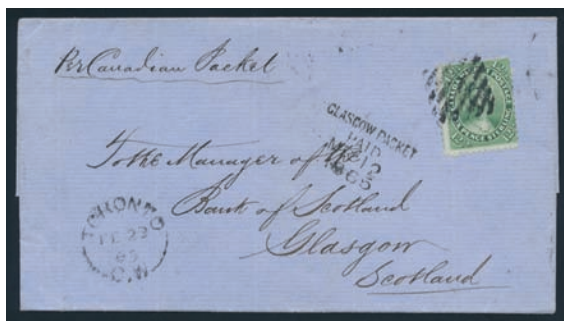 Per Canadian Packet
POSTAGE
PENCE STERLING
GLASGOW PACKET
PAID
MR 12
1865
To the Manager of the
Bank of Scotland
Glasgow
Scotland
TORONTO
FE 23
65
C.W.